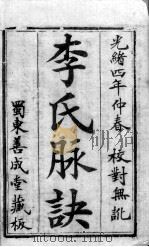 光緒四年仲春 校對無訛
李氏脉訣
蜀東善成堂藏板